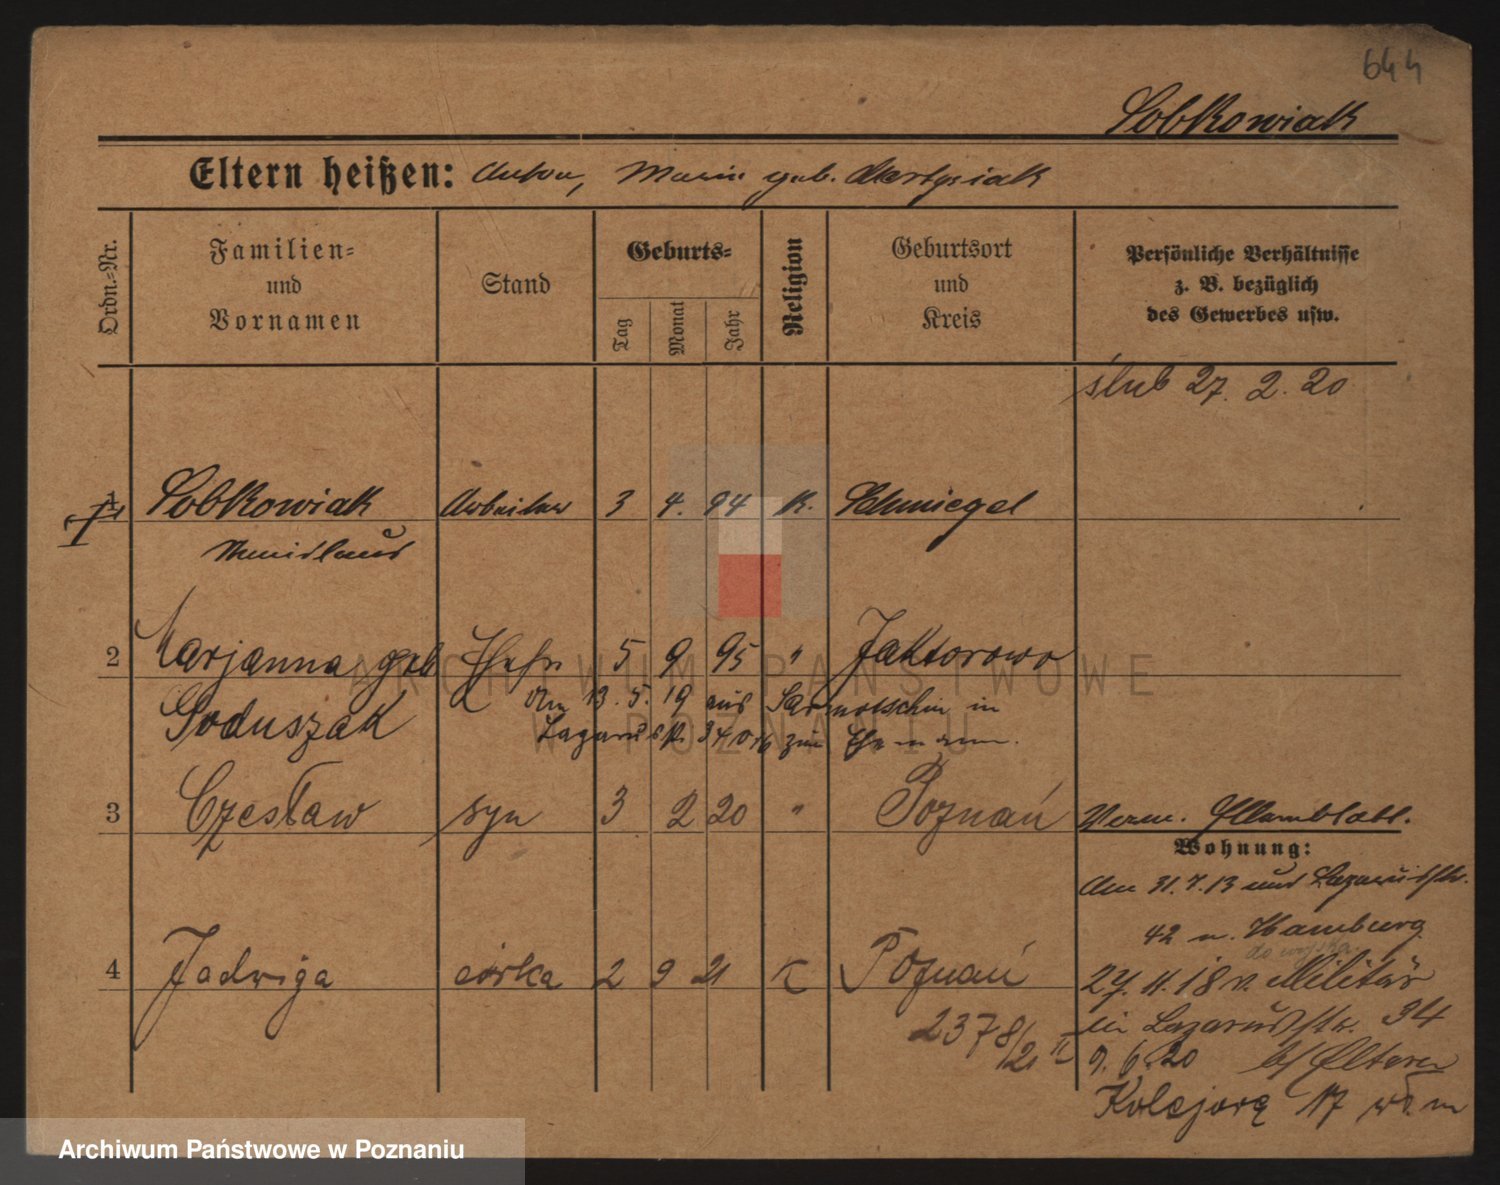 644
Sobkowiak
Eltern heißen: Anton, Marie geb. Martysiak
Ordn.-Nr.
Familien-
und
Vornamen
Stand
Geburts-
Tag
Monat
Jahr
Religion
Geburtsort
und
Kreis
Persönliche Verhältnisse
z. B. bezüglich
des Gewerbes usw.
ślub 27. 2. 20
1 Sobkowiak Arbeiter 3 4. 94 K. Schmiegel
2 Marjanna geb Ehefr. 5 9 95 " Jaktorowo
Goduszak
Am 13. 5. 19 aus in
Lazarusstr. 34 zum Ehemann.
3 Czesław syn 3 2 20 " Poznań
Wohnung:
Am 31. 7. 13 aus Lazarusstr.
42 n. Hamburg
do wojska
4 Jadwiga córka 2 9 21 K Poznań
27. 11. 18 v. Militär
in Lazarusstr. 34
2378/21 II
9. 6. 20 b/ Eltern
Kolejową 17
ARCHIWUM PAŃSTWOWE
W POZNANIU
Archiwum Państwowe w Poznaniu